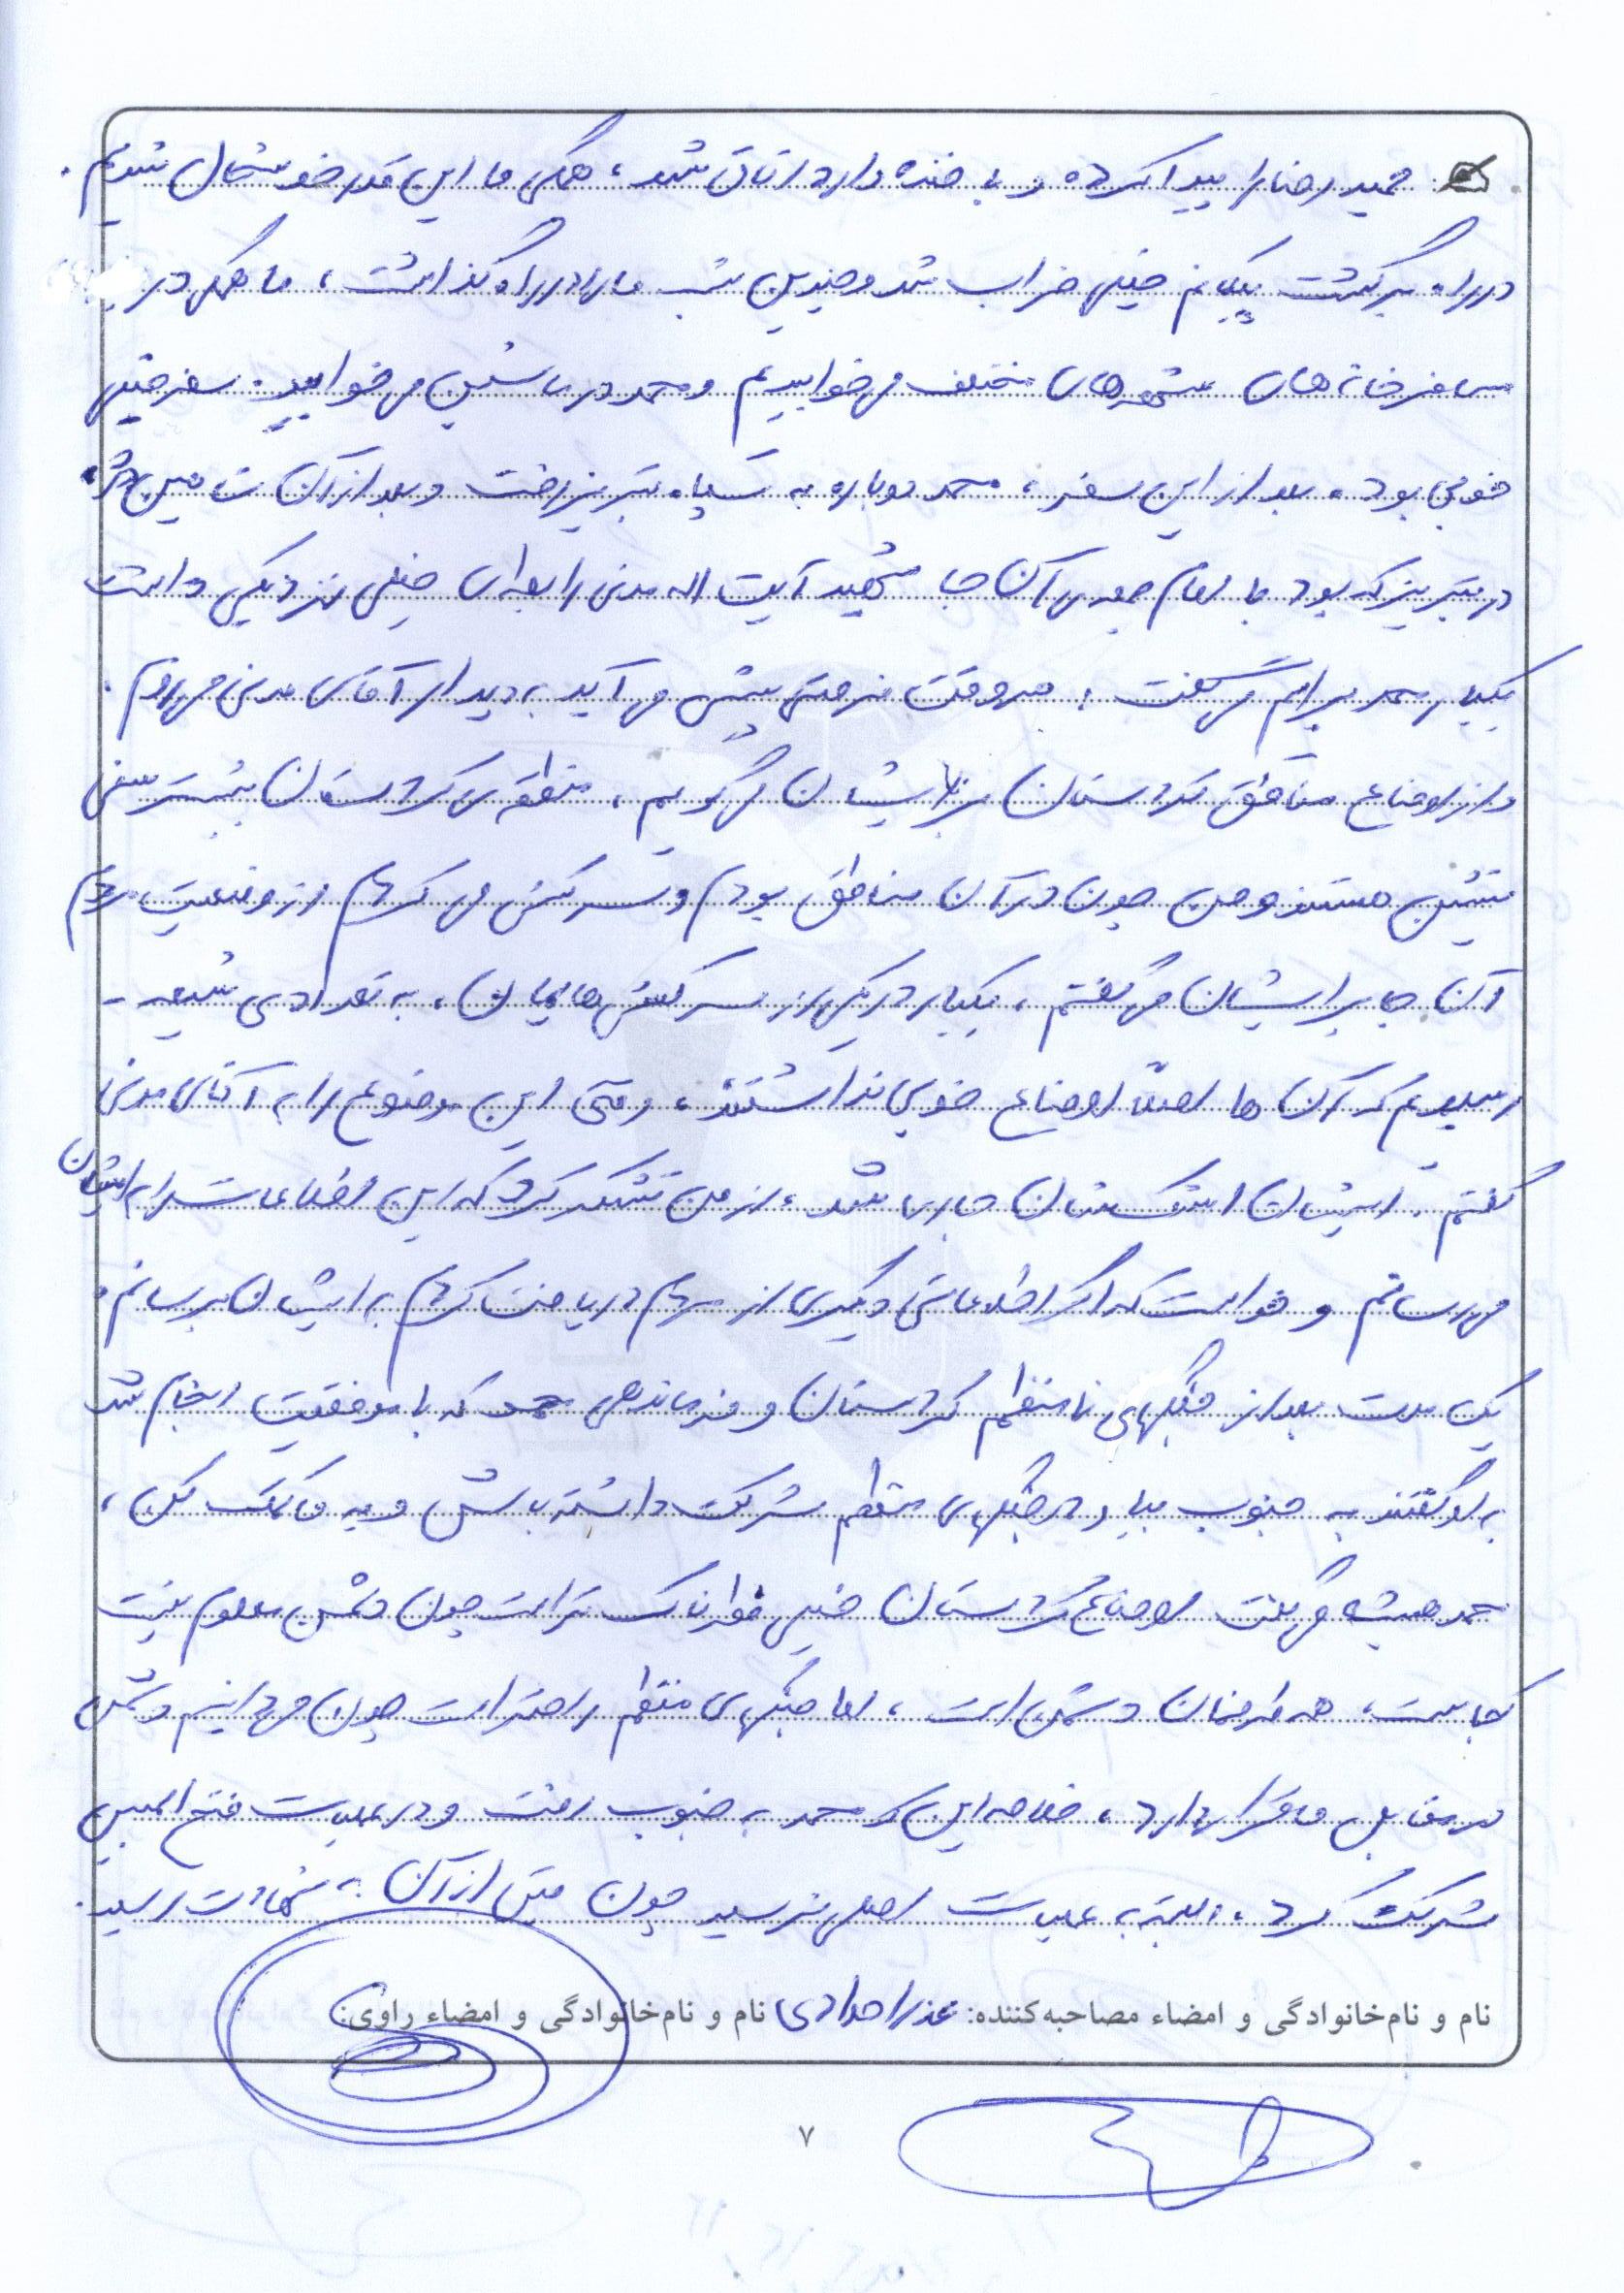 حمیدرضا را پیدا کرده و با خنده وارد اتاق شد، همگی ما این قدر خوشحال شدیم.
در راه برگشت پیکانم خیلی خراب شد و چندین شب ما را در راه گذاشت، ما همگی در
مسافرخانه‌های شهرهای مختلف می‌خوابیدیم و محمد در ماشین می‌خوابید. سفر خیلی
خوبی بود. بعد از این سفر، محمد دوباره به سپاه تبریز رفت و بعد از آن
در تبریز که بود با امام جمعه‌ی آن جا شهید آیت اله مدنی رابطه‌ای خیلی نزدیکی داشت
یکبار محمد برایم می‌گفت: هر وقت فرصتی پیش می‌آید به دیدار آقای مدنی می‌روم.
و از اوضاع مناطق کردستان برایشان می‌گویم، منطقه‌ی کردستان بیشتر سنی
نشین هستند و من چون در آن مناطق بودم و سرکشی می‌کردم از وضعیت مردم
آن جا برایشان می‌گفتم، یکبار در یکی از سرکشی‌هایمان، به تعدادی شیعه -
رسیدیم که آن ها اصلاً اوضاع خوبی نداشتند، وقتی این موضوع را به آقای مدنی
گفتم. ایشان اشکشان جاری شد، از من تشکر کرد که این اطلاعات را به ایشان
می‌رسانم و خواست که اگر اطلاعاتی دیگری از مردم دریافت کردم به ایشان برسانم.
یک مدت بعد از جنگهای نامنظم کردستان و فرماندهی محمد که با موفقیت انجام شد
به او گفتند به جنوب بیا و در جنگهای منظم شرکت داشته باش و به ما کمک کن،
محمد همیشه می‌گفت اوضاع کردستان خیلی خطرناک تر است چون دشمن معلوم نیست
کجاست، هر طرفمان دشمن است، اما جنگهای منظم راحتتر است چون می‌دانیم دشمن
در مقابل ما قرار دارد، خلاصه این که محمد به جنوب رفت و در عملیات فتح المبین
شرکت کرد، البته به عملیات اصلی نرسید چون قبل از آن به شهادت رسید.
نام و نام‌خانوادگی و امضاء مصاحبه‌کننده: عذرا حدادی نام و نام‌خانوادگی و امضاء راوی:
۷